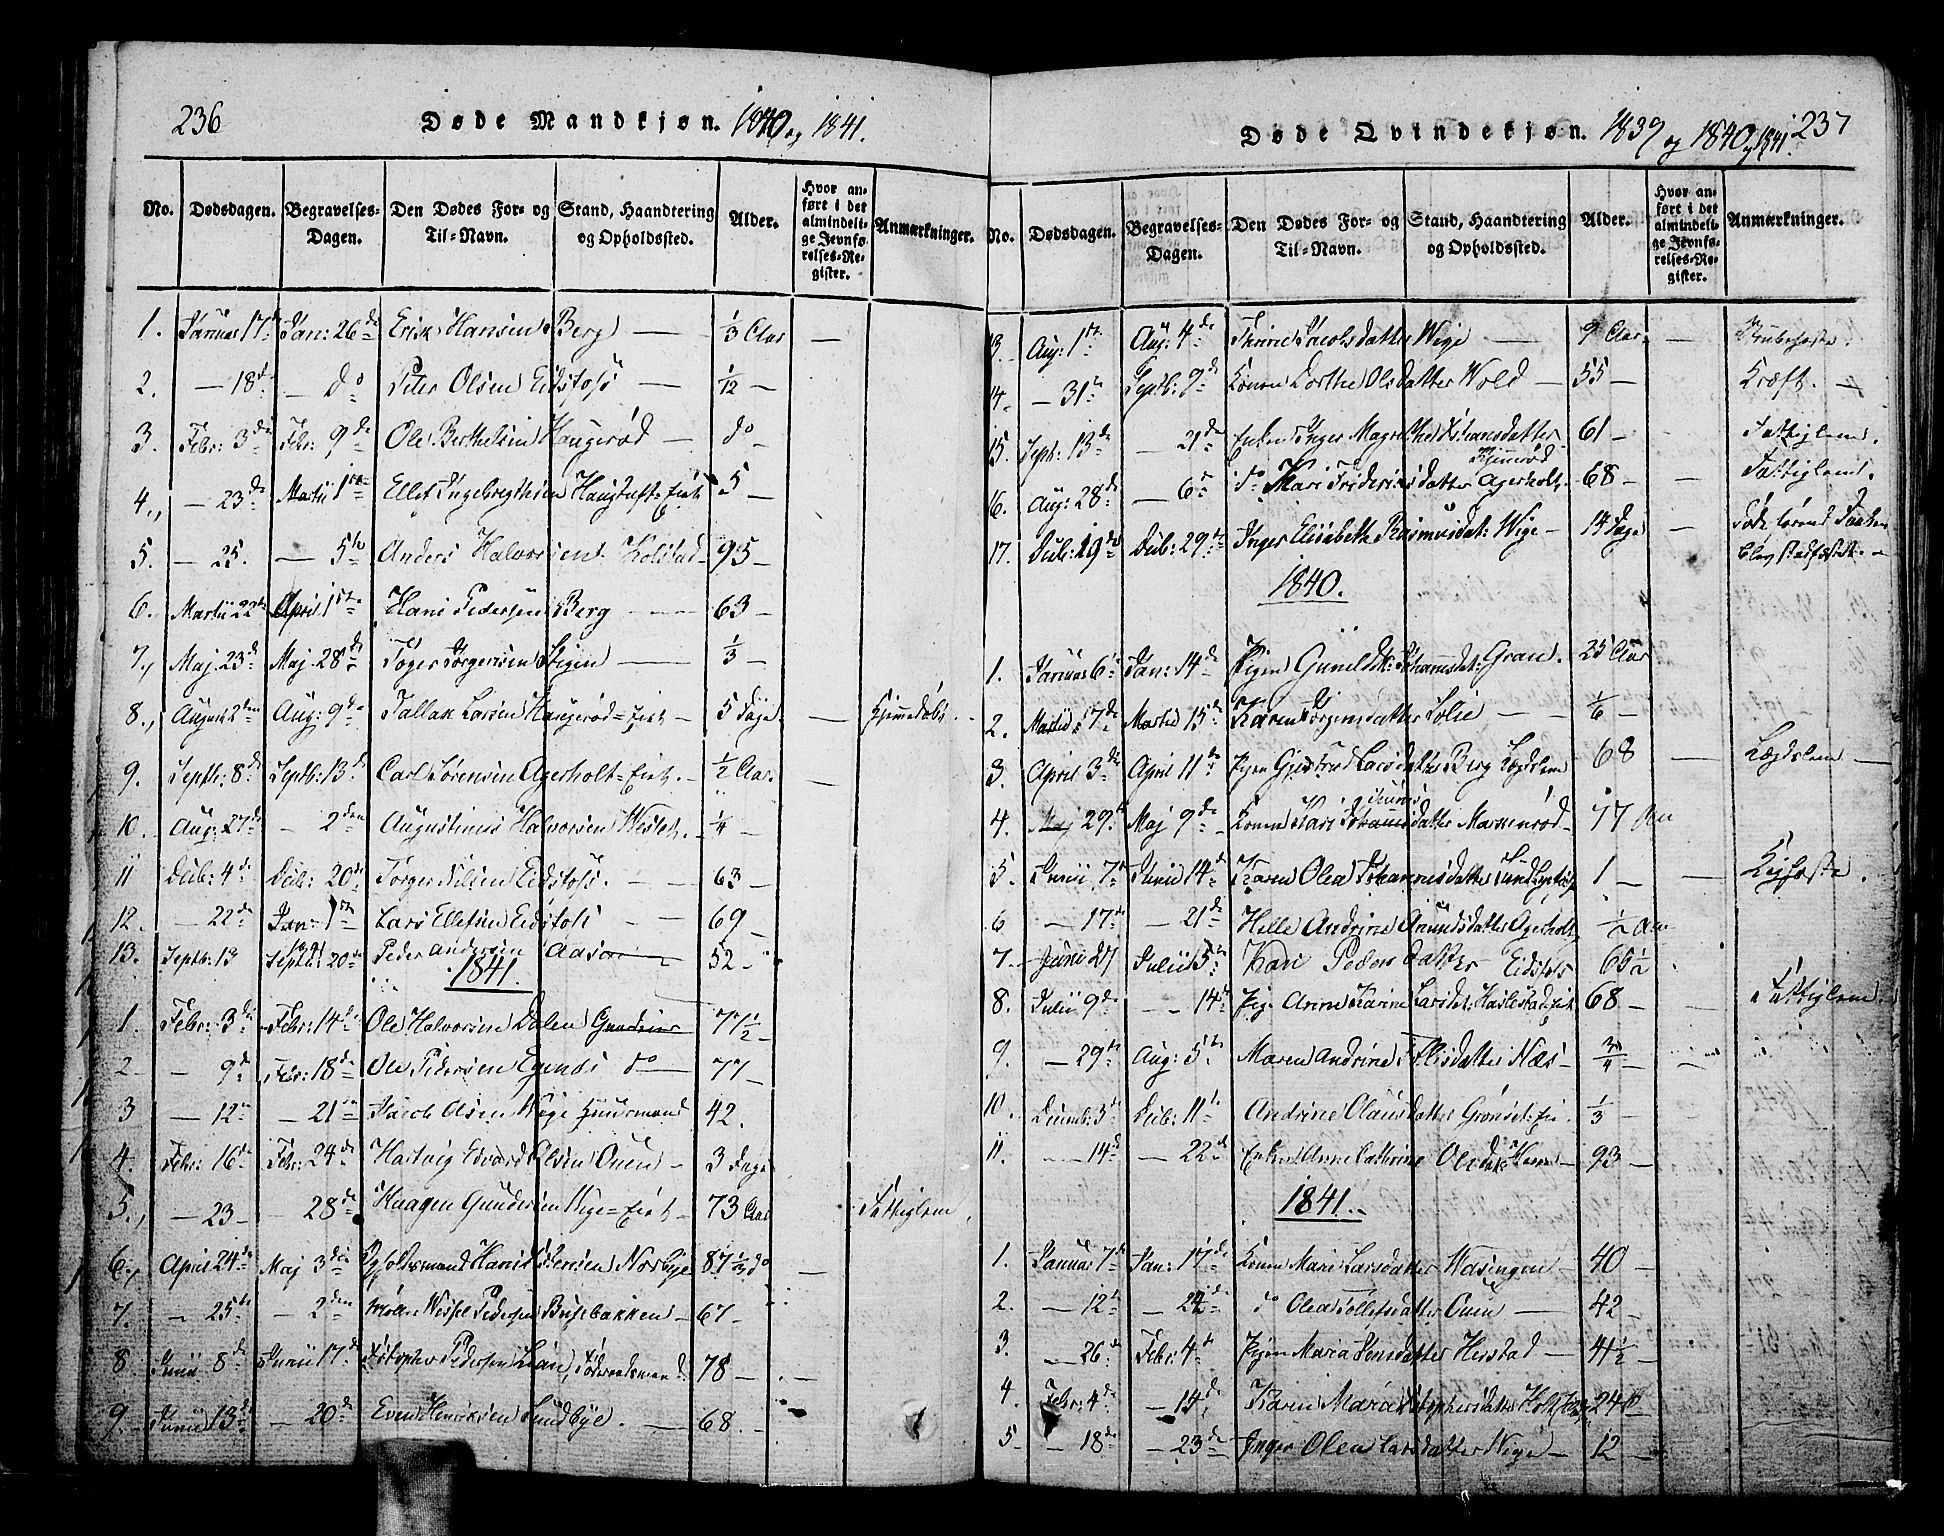 236
Døde Mandkjøn. 1840 og 1841.
No. Dødsdagen. Begravelses-Dagen. Den Dødes For- og Til-Navn. Stand, Haandtering og Opholdssted. Alder. Hvor anført i det almindelige Jevnførelses-Register. Anmærkninger.
1. Januar 17 Jan: 26de Erik Hansen Berg — 1/3 Aar —
2. — 18de — do Peter Olsen Eidsfoss — 1/12 —
3. Febr: 3die Febr: 9de Ole Berthelsen Haugerød — do —
4. — 23de Martii 1ste Ellef Ingebregtsen 5 —
5. — 25. — 5te Anders Halvorsen Holstad 95 —
6. Martii 22de April 1ste Hans Pedersen Berg — 63 —
7. Maj 23de Maj 28de Jørgensen — 1/3 —
8. August 2den Aug: 9de Tallak Larsen Haugerød-Eiet — 5 Dage — Hjemedøbt.
9. Septb: 8de Septb: 13de Carl Sørensen Agerholt-Eiet. 1/2 Aar. —
10. Aug: 27de — 2den Augustinus Halvorsen 1/4 —
11 Decb: 4de Decb: 20de Jørgen Nilsen Eidsfoss. — 63 —
12. — 22de Jan: 1ste 1841 Lars Ellefsen Eidsfoss — 69 —
13. Septb: 13 Septb: 20de Peder Andersen Aasen 52 —
1841.
1. Febr: 3die Febr: 14de Ole Halvorsen Dalen 77 1/2 —
2 — 9de Febr: 18de Ole Pedersen do — 77 —
3 — 12te — 21de Jacob Olsen Wige Huusmand 42.
4. Febr: 16de Febr: 24de Hartvig Edvard Olsen Ouen — 3 Dage
5. — 23 — — 28de Haagen Gundersen Wige-Eiet — 73 Aar Fattiglem.
6. April 24de Maj 3die Hans Nordbye 87 1/3 do —
7. — 25de — 2den Pedersen Busebakken — 67 —
8 Junii 8de Junii 17de Pedersen Lian, Føderaadsmand. 78 — —
9. Junii 13de — 20de Even Henriksen Sundbye. — 68. —
Døde Qvindekjøn. 1839 og 1840 og 1841. 237
No. Dødsdagen. Begravelses-Dagen. Den Dødes For- og Til-Navn. Stand, Haandtering og Opholdssted. Alder. Hvor anført i det almindelige Jevnførelses-Register. Anmærkninger.
13. Aug: 1ste Aug: 4de Thrine Jacobsdatter Wige — 9 Aar. —
14. — 31te Septb: 9de Konen Dorthe Olsdatter Wold — 55 — Kræft. —
15. Septb: 13de — 21de Enken Inger Magrethe Johansdatter 61 — Fattiglem.
16. Aug: 28de — 6te do Kari Fridrichsdatter Agerholt. 68 — — Fattiglem.
17. Julii: 19de Julii: 29de Inger Elisabeth Rasmusdat: Wige — 14 Dage —
1840.
1. Januar 6te Jan: 14de Pigen Gunild Johannsdat: Gran. 25 Aar
2. Martii 7de Martii 15de Karen Jørgensdatter Solie — — 1/6 —
3. April 3die April 11te Pigen Gjertrud Larsdatter Berg Lægdslem 68 — Lægdslem —
4. Maj 29de Maj 9de Konen Kari 77 Aar
5. Junii 7de Junii 14de Karen Olea Johannesdatter 1 — — Kighoste.
6 — 17de — 21de Helle Andrine Amundsdatter Agerholt 1/2 Aar
7. Juni 27 Julii 5te Kari Pedersdatter Eidsfos 65 1/2
8. Julii 9de — 14de Pigen Anne Karine Larsdat: Haslestad Eiet 68 — — Fattiglem.
9. — 29de Aug: 5te Maren Andrine Næs — 3/4 —
10. Decemb: 3die Decb: 11te Andrine Olausdatter Grønset: Ei. 1/3 —
11. — 14de — 22de Enken Anne Cathrine Olsdat: Hem — 93 —
1841.
1. Januar 7de Jan: 17de Konen Mari Larsdatter 40 —
2. — 12te — 24de do Olea Tollefsdatter Ouen — 42 —
3. — 26de Febr: 4de Pigen Maria Jensdatter Herstad — 41 1/2 —
4. Febr: 4de — 14de Karen Maria 24
5 — — 18de — 23de Inger Olea Larsdatter Wige — 12 —